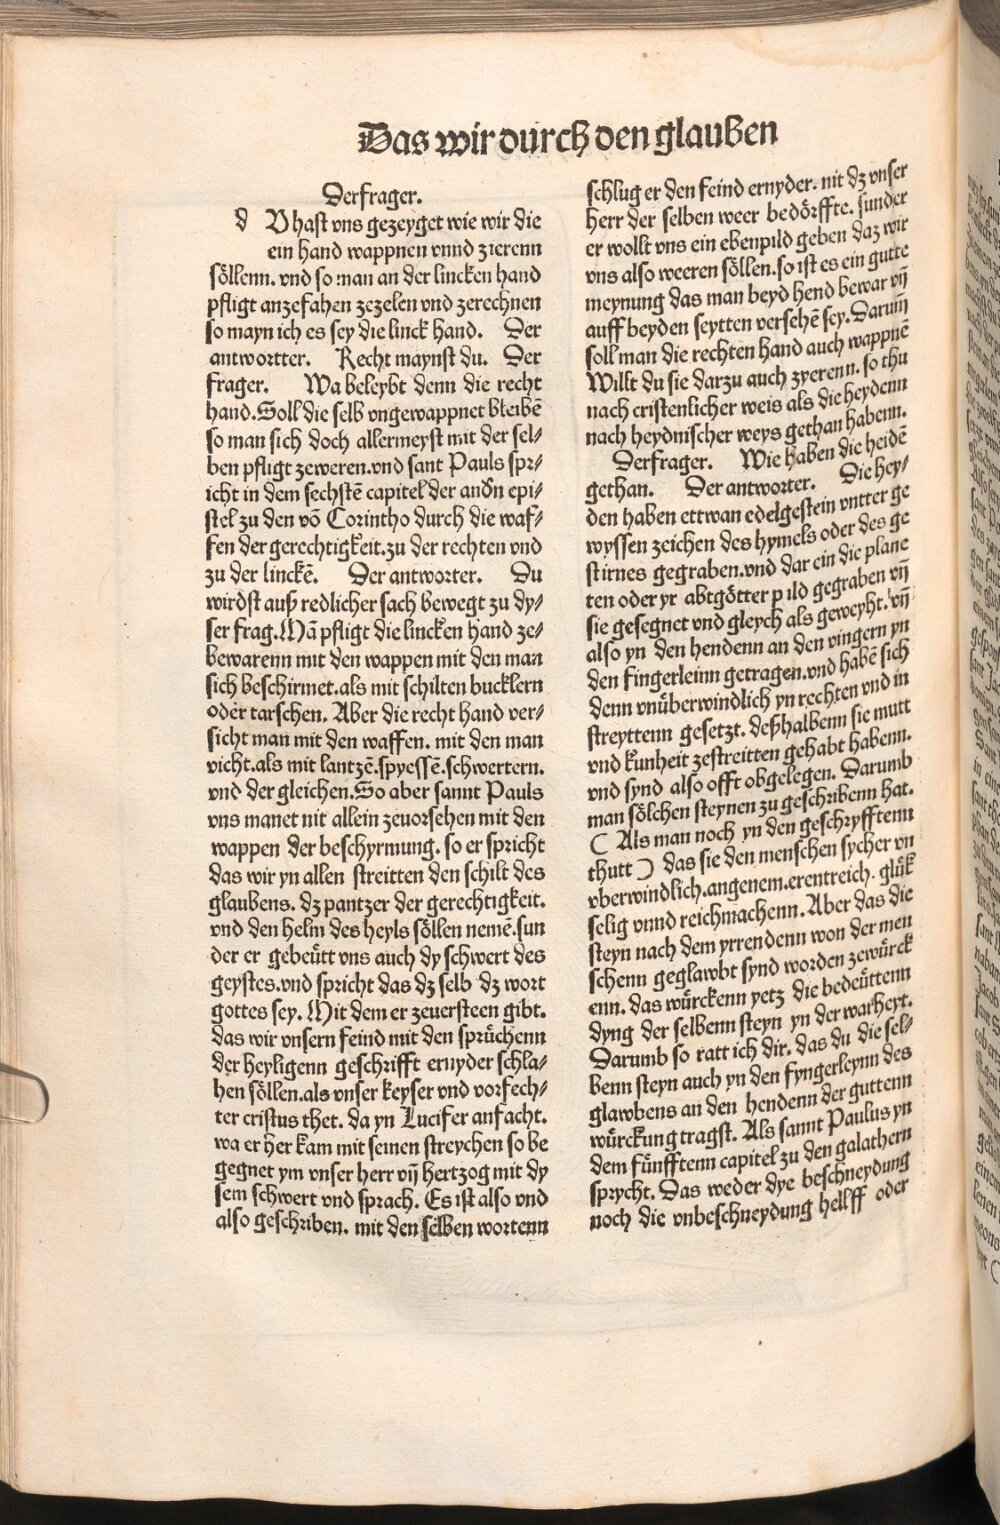 Das wir durch den glauben
Der frager.
d V hast vns gezeyget wie wir die
ein hand wappnen vnnd zierenn
söllenn. vnd so man an der lincken hand
pfligt anzefahen zezelen vnd zerechnen
so mayn ich es sey die linck hand. Der
antwortter. Recht maynst du. Der
frager. Wa beleybt denn die recht
hand. Soll die selb vngewappnet bleibē
so man sich doch allermeyst mit der sel⸗
ben pfligt zeweren. vnd sant Pauls spr⸗
icht in dem sechstē capitel der andn epi⸗
stel zu den vō Corintho durch die waf⸗
fen der gerechtigkeit. zu der rechten vnd
zu der linckē. Der antworter. Du
wirdst auß redlicher sach bewegt zu dy⸗
ser frag. Mā pfligt die lincken hand ze⸗
bewarenn mit den wappen mit den man
sich beschirmet. als mit schilten bucklern
oder tarschen. Aber die recht hand ver⸗
sicht man mit den waffen. mit den man
vicht. als mit lantzē. spyessē. schwertern.
vnd der gleichen. So aber sannt Pauls
vns manet nit allein zeuorsehen mit den
wappen der beschyrmung. so er spricht
das wir yn allen streitten den schilt des
glaubens. dz pantzer der gerechtigkeit.
vnd den helm des heyls söllen nemē. sun
der er gebeütt vns auch dy schwert des
geystes. vnd spricht das dz selb dz wort
gottes sey. Mit dem er zeuersteen gibt.
das wir vnsern feind mit den sprüchenn
der heyligenn geschrifft ernyder schla⸗
hen söllen. als vnser keyser vnd vorfech⸗
ter cristus thet. da yn Lucifer anfacht.
wa er her kam mit seinen streychen so be
gegnet ym vnser herr vn̄ hertzog mit dy
sem schwert vnd sprach. Es ist also vnd
also geschriben. mit den selben wortenn
schlug er den feind ernyder. nit dz vnser
herr der selben weer bedörffte. sunder
er wollt vns ein ebenpild geben daz wir
vns also weeren söllen. so ist es ein gutte
meynung das man beyd hend bewar vn̄
auff beyden seytten versehē sey. Darum̄
soll man die rechten hand auch wappnē
Willt du sie darzu auch zyerenn. so thu
nach cristenlicher weis als die heydenn
nach heydnischer weys gethan habenn.
Der frager. Wie haben die heidē
gethan. Der antworter. Die hey⸗
den haben ettwan edelgestein vntter ge
wyssen zeichen des hymels oder des ge
stirnes gegraben. vnd dar ein die plane
ten oder yr abtgötter pild gegraben vn̄
sie gesegnet vnd gleych als geweyht. vn̄
also yn den hendenn an den vingern yn
den fingerleinn getragen. vnd habē sich
denn vnüberwindlich yn rechten vnd in
streyttenn gesetzt. deßhalbenn sie mutt
vnd kunheit zestreitten gehabt habenn.
vnd synd also offt obgelegen. Darumb
man sölchen steynen zu geschribenn hat.
( Als man noch yn den geschryfftenn
thutt ) das sie den menschen sycher vn
vberwindlich. angenem. erentreich. glük
selig vnnd reich machenn. Aber das die
steyn nach dem yrrendenn won der men
schenn geglawbt synd worden zewürck
enn. das würckenn yetz die bedeüttenn
dyng der selbenn steyn yn der warheyt.
Darumb so ratt ich dir. das du die sel⸗
benn steyn auch yn den fyngerleynn des
glawbens an den hendenn der guttenn
würckung tragst. Als sannt Paulus yn
dem fünfftenn capitel zu den galathern
sprycht. Das weder dye beschneydung
noch die vnbeschneydung hellff oder